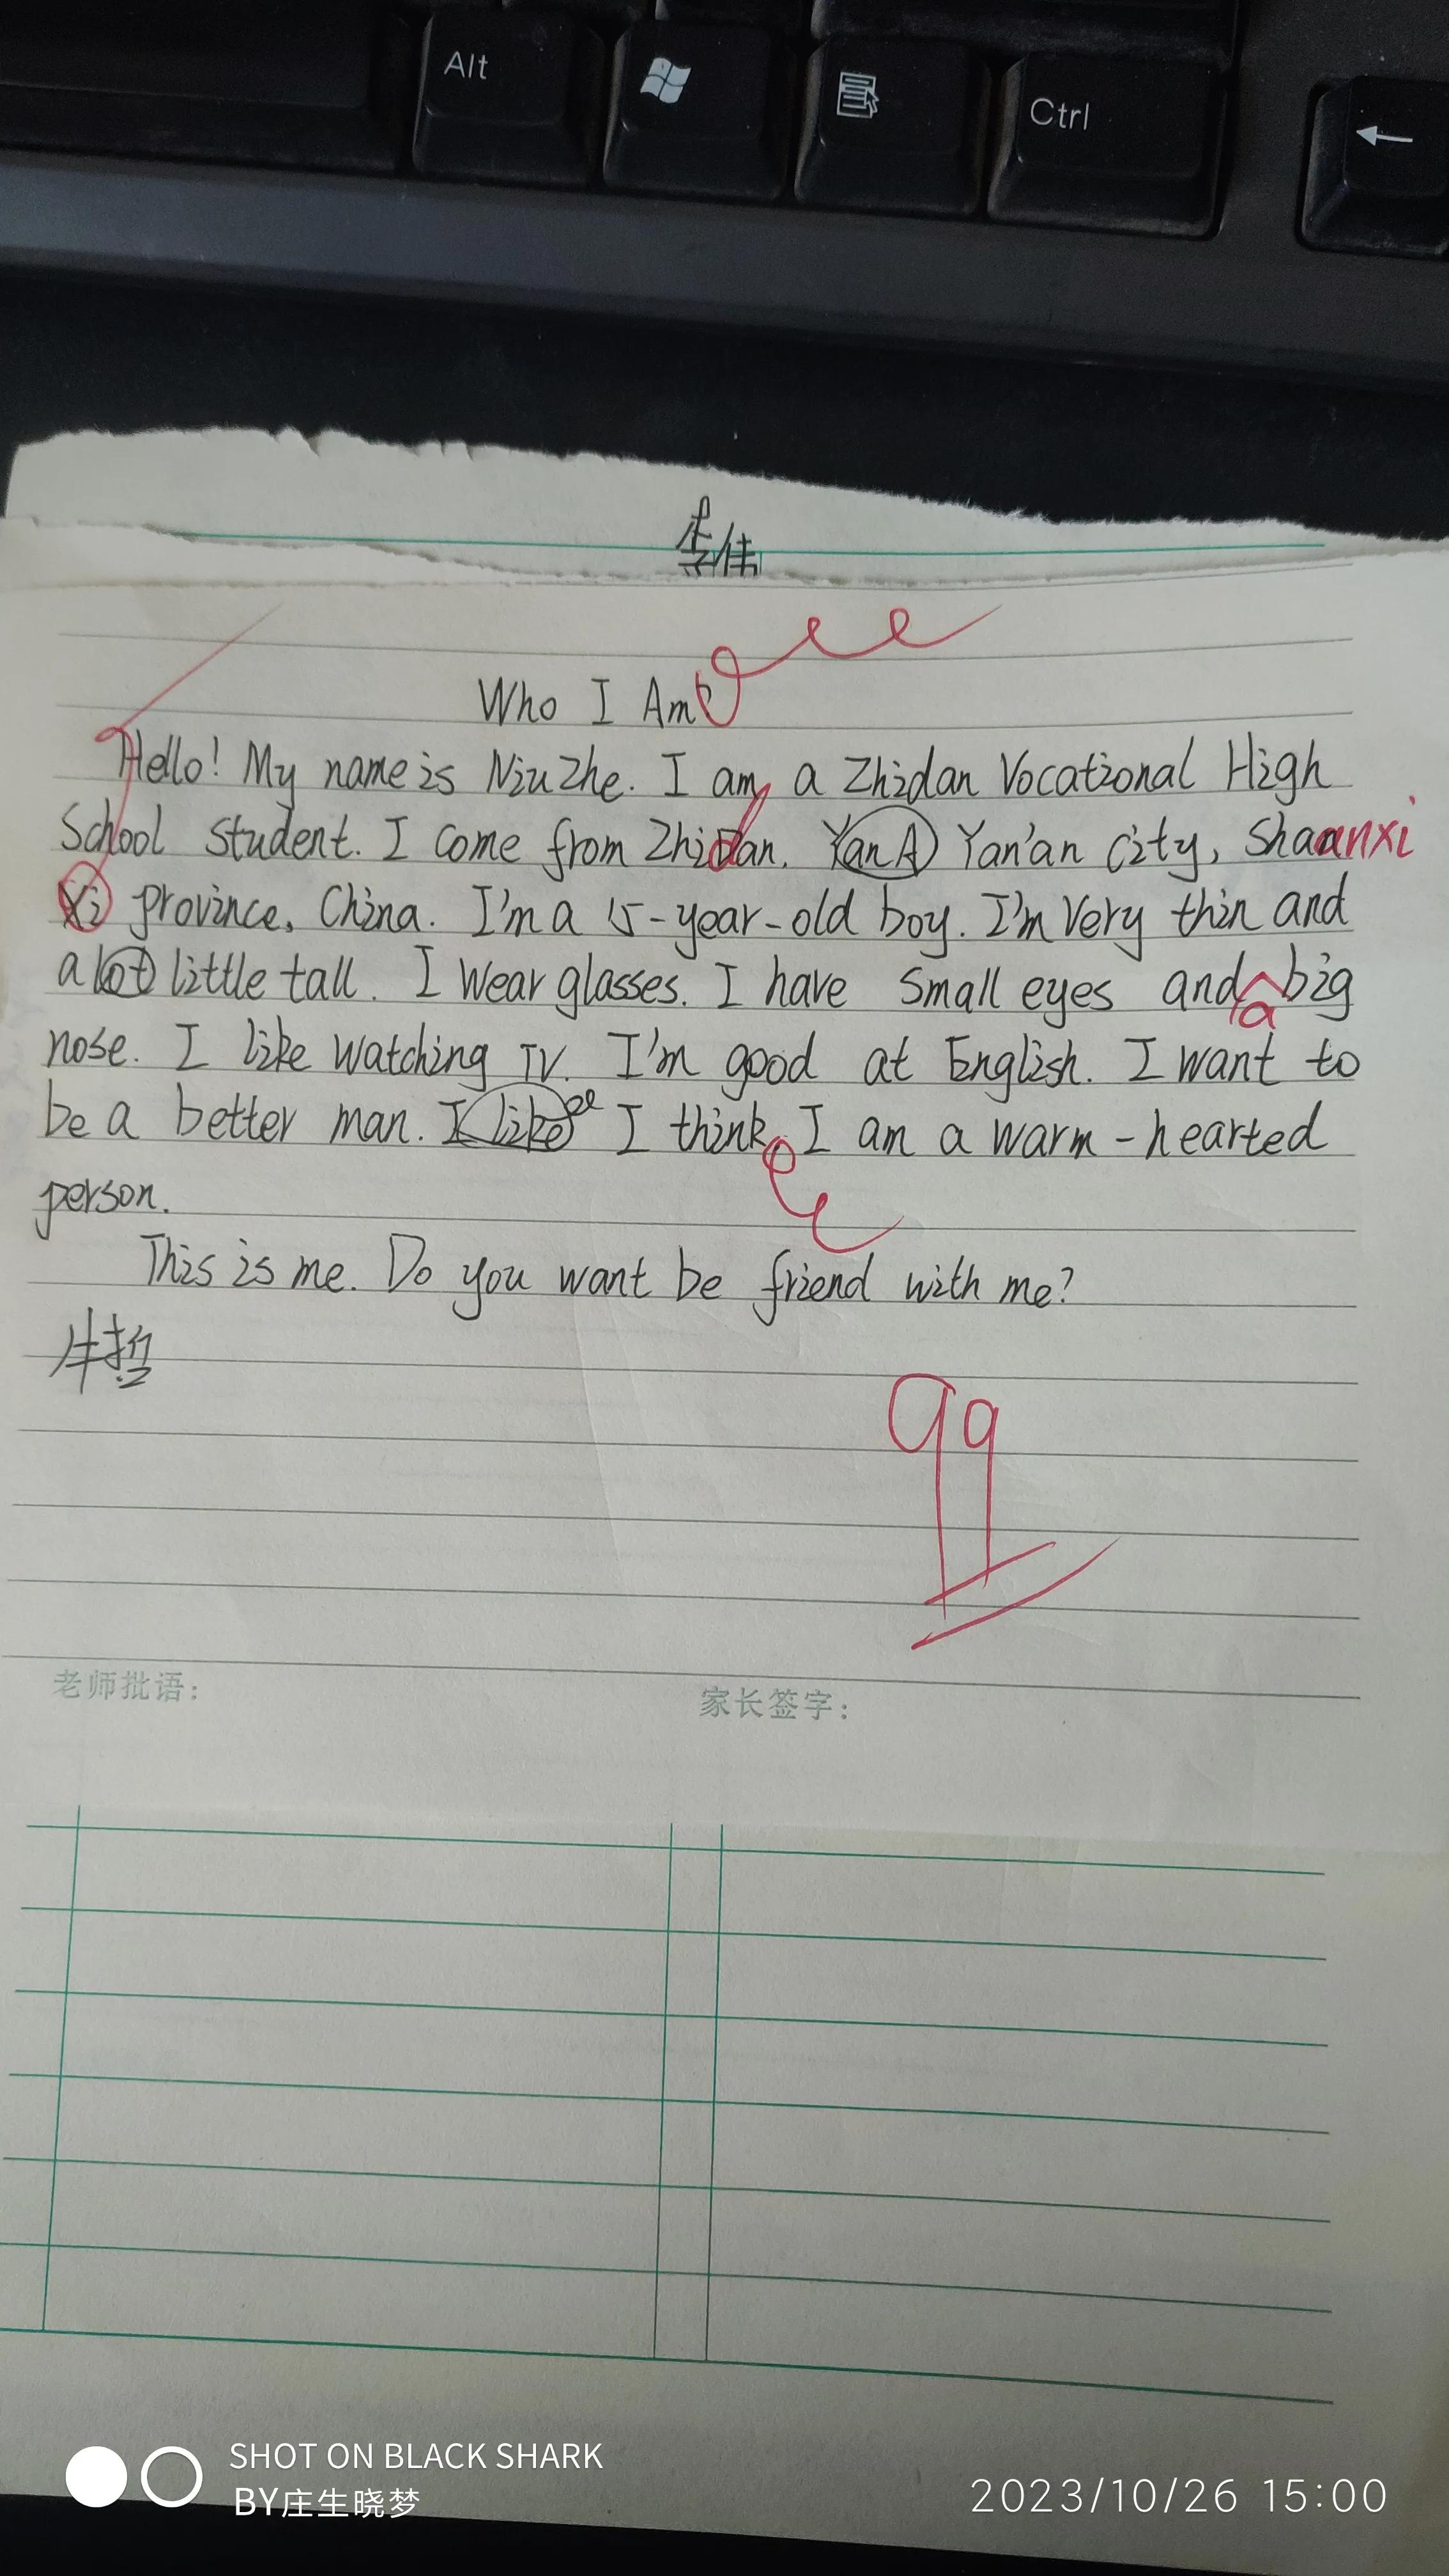 Alt
Ctrl
←
Who I Am?
Hello! My name is Niu Zhe. I am a Zhidan Vocational High
School student. I come from Zhidan. Yan A Yan'an city, Shaanxi
Xi province, China. I'm a 15-year-old boy. I'm Very thin and
a lot little tall. I Wear glasses. I have Small eyes and a big
nose. I like Watching TV. I'm good at English. I want to
be a better man. I like I think, I am a warm-hearted
person.
This is me. Do you want be friend with me?
牛哲
99
老师批语:
家长签字:
SHOT ON BLACK SHARK
BY庄生晓梦
2023/10/26 15:00